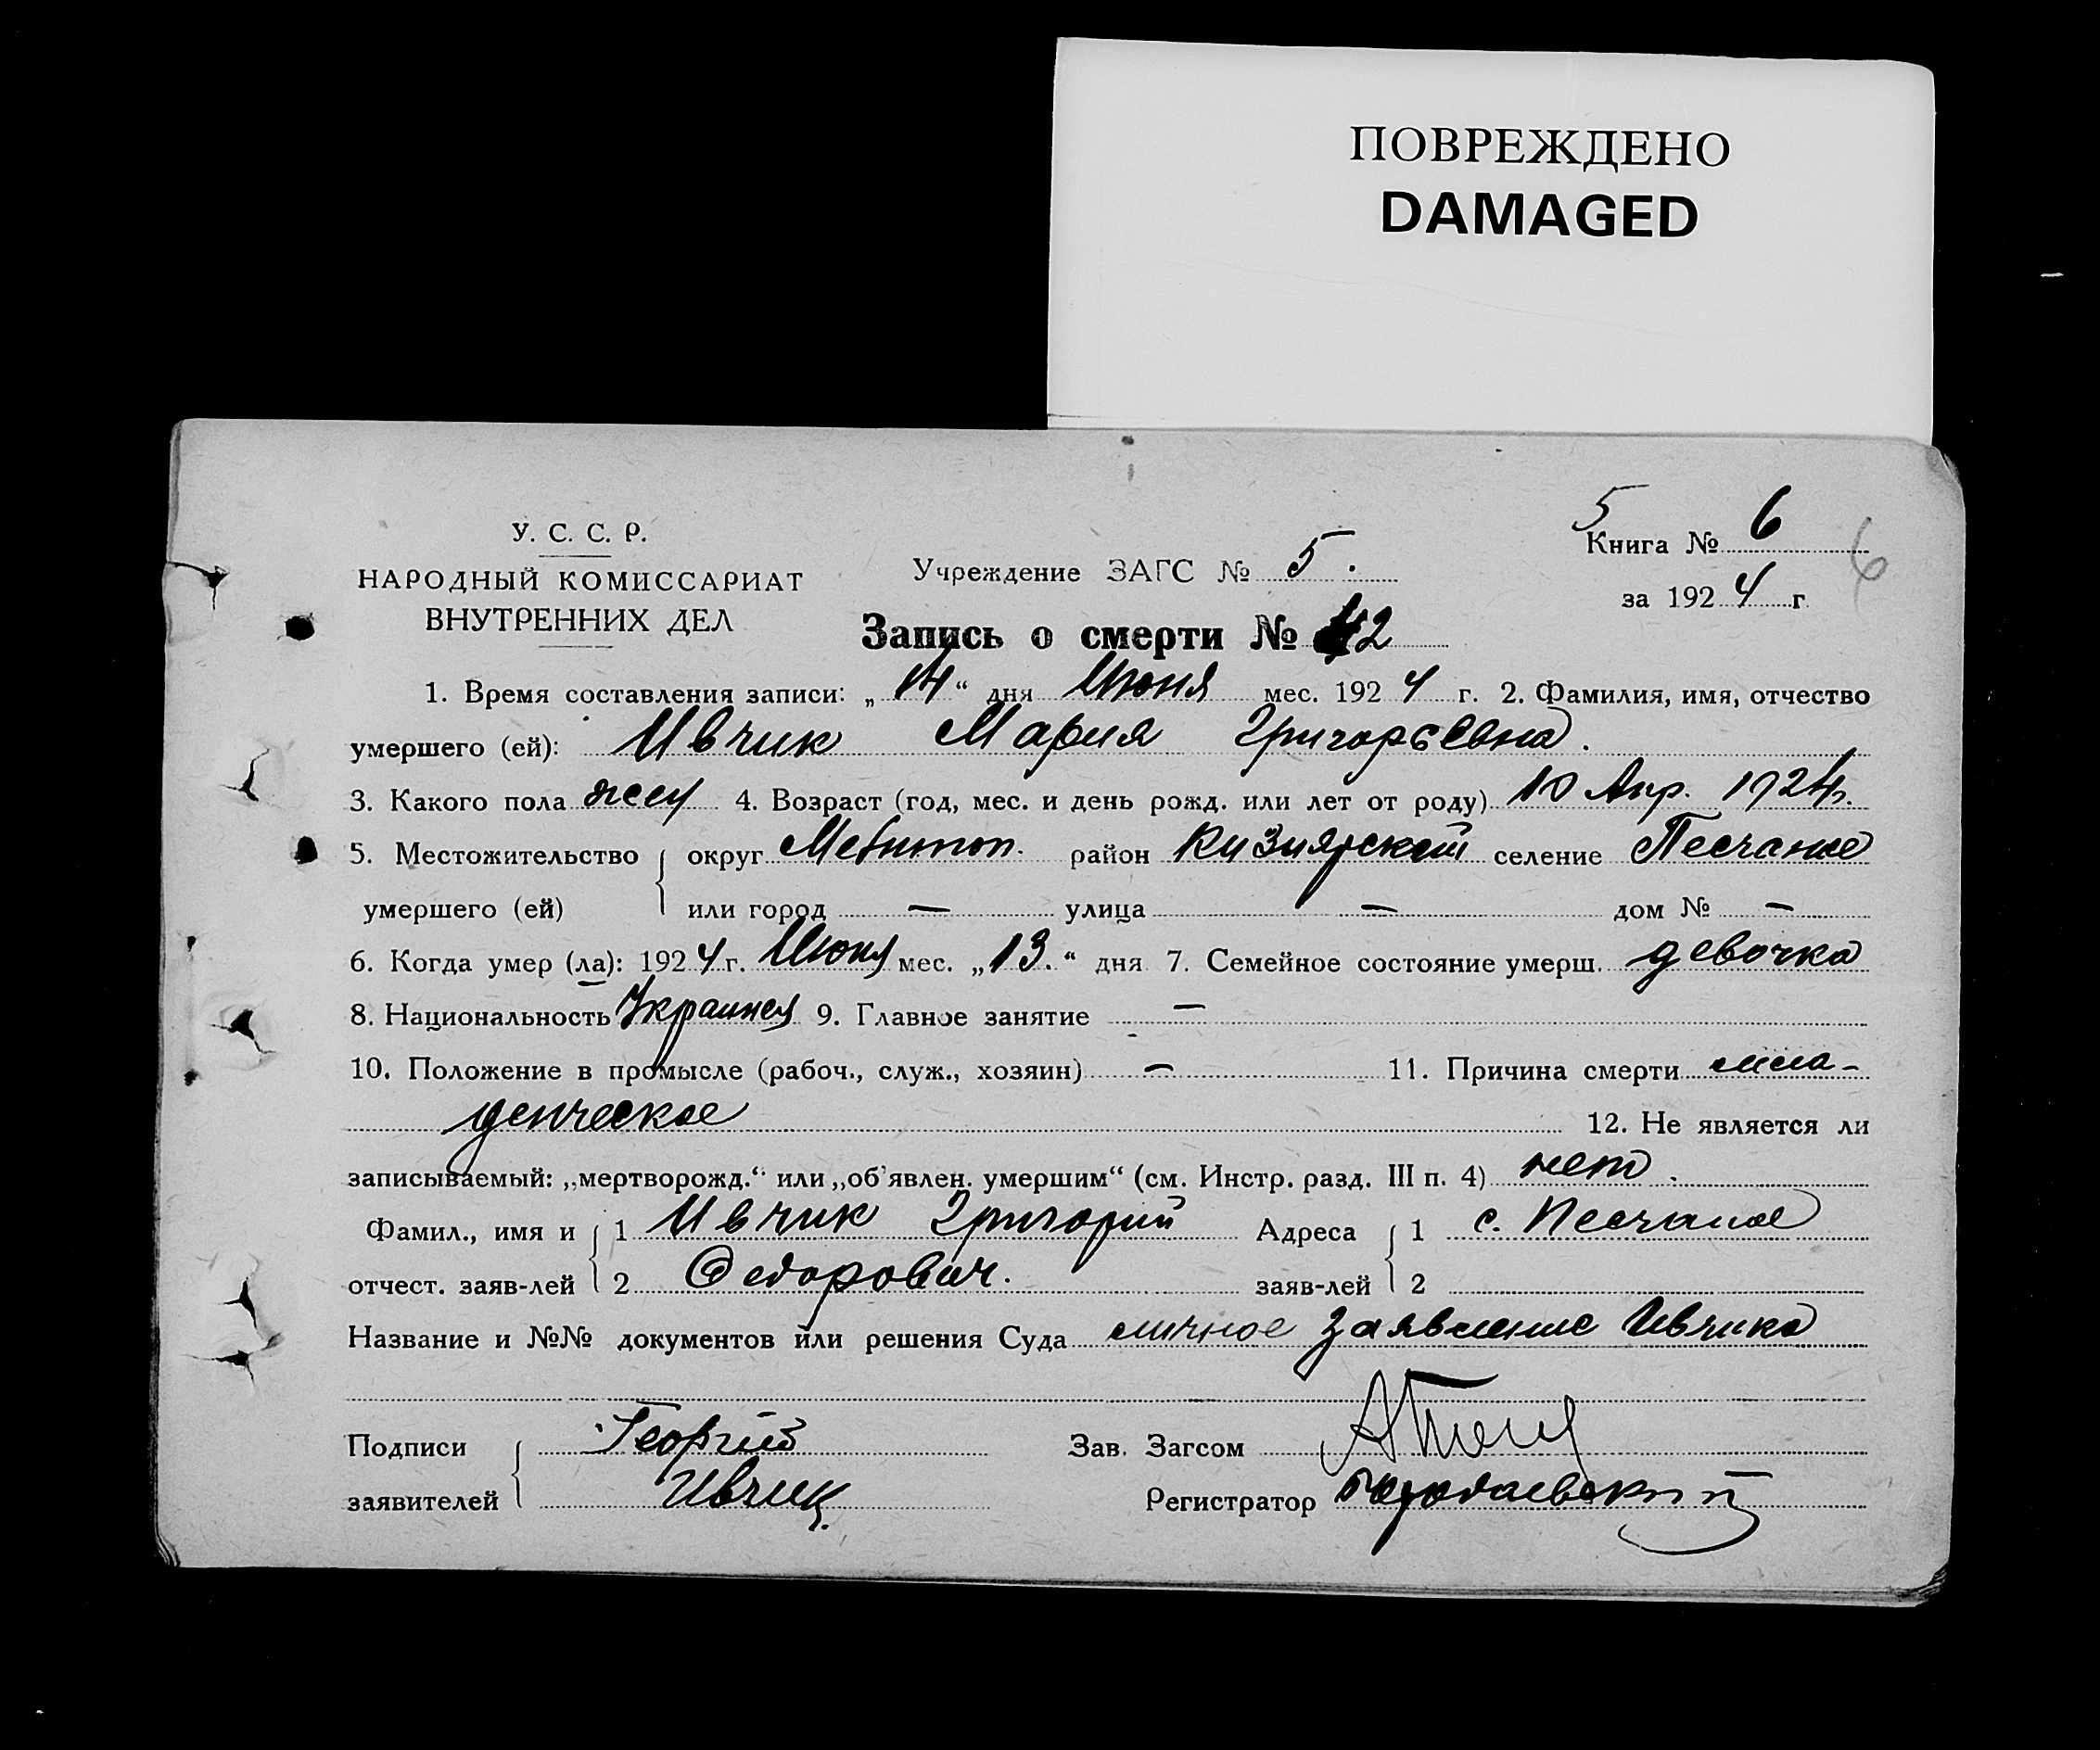 ПОВРЕЖДЕНО
DAMAGED
5
У. С. С. Р.
НАРОДНЫЙ КОМИССАРИАТ
ВНУТРЕННИХ ДЕЛ
Учреждение ЗАГС № 5.
Книга № 6
6
за 1924 г.
Запись о смерти № 42
1. Время составления записи: „14“ дня Июня мес. 1924 г. 2. Фамилия, имя, отчество
умершего (ей): Ивчик Мария Григорьевна.
3. Какого пола жен 4. Возраст (год, мес. и день рожд. или лет от роду) 10 Апр. 1924г.
5. Местожительство округ Мелитоп. район Кизиярский селение Песчаное
умершего (ей) или город — улица — дом № —
6. Когда умер (ла): 1924 г. Июня мес. „13.“ дня 7. Семейное состояние умерш. девочка
8. Национальность 9. Главное занятие —
10. Положение в промысле (рабоч., служ., хозяин) — 11. Причина смерти мла-
денческое 12. Не является ли
записываемый: „мертворожд.“ или „об'явлен. умершим“ (см. Инстр. разд. III п. 4) нет.
Фамил., имя и 1 Ивчик Григорий Адреса 1 с. Песчаное
отчест. заяв-лей 2 Федорович. заяв-лей 2
Название и №№ документов или решения Суда личное заявление Ивчика
Подписи Георгий Зав. Загсом
заявителей Ивчик Регистратор